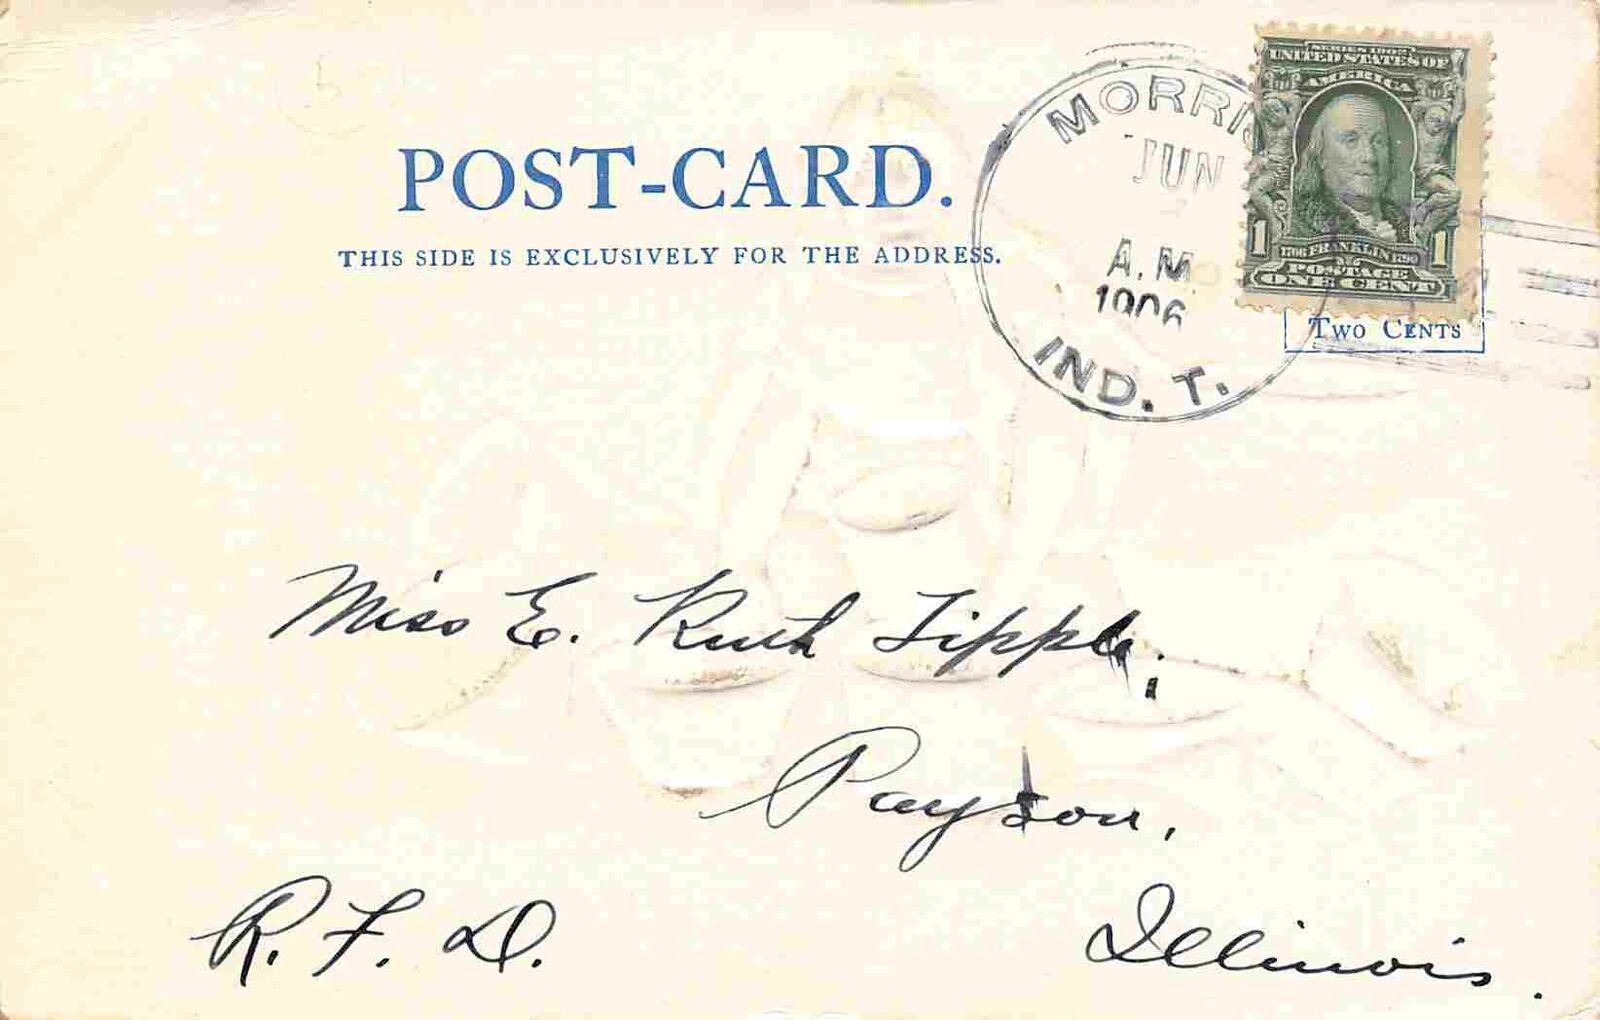 POST-CARD.
THIS SIDE IS EXCLUSIVELY FOR THE ADDRESS.
MORRIS
JUN
A.M
1906
IND. T.
SERIES 1902
UNITED STATES OF
AMERICA
1 1706 FRANKLIN 1790 1
POSTAGE
ONE CENT
TWO CENTS
Miss E. Ruth Tipple,
Payson,
R. F. D. Illinois.